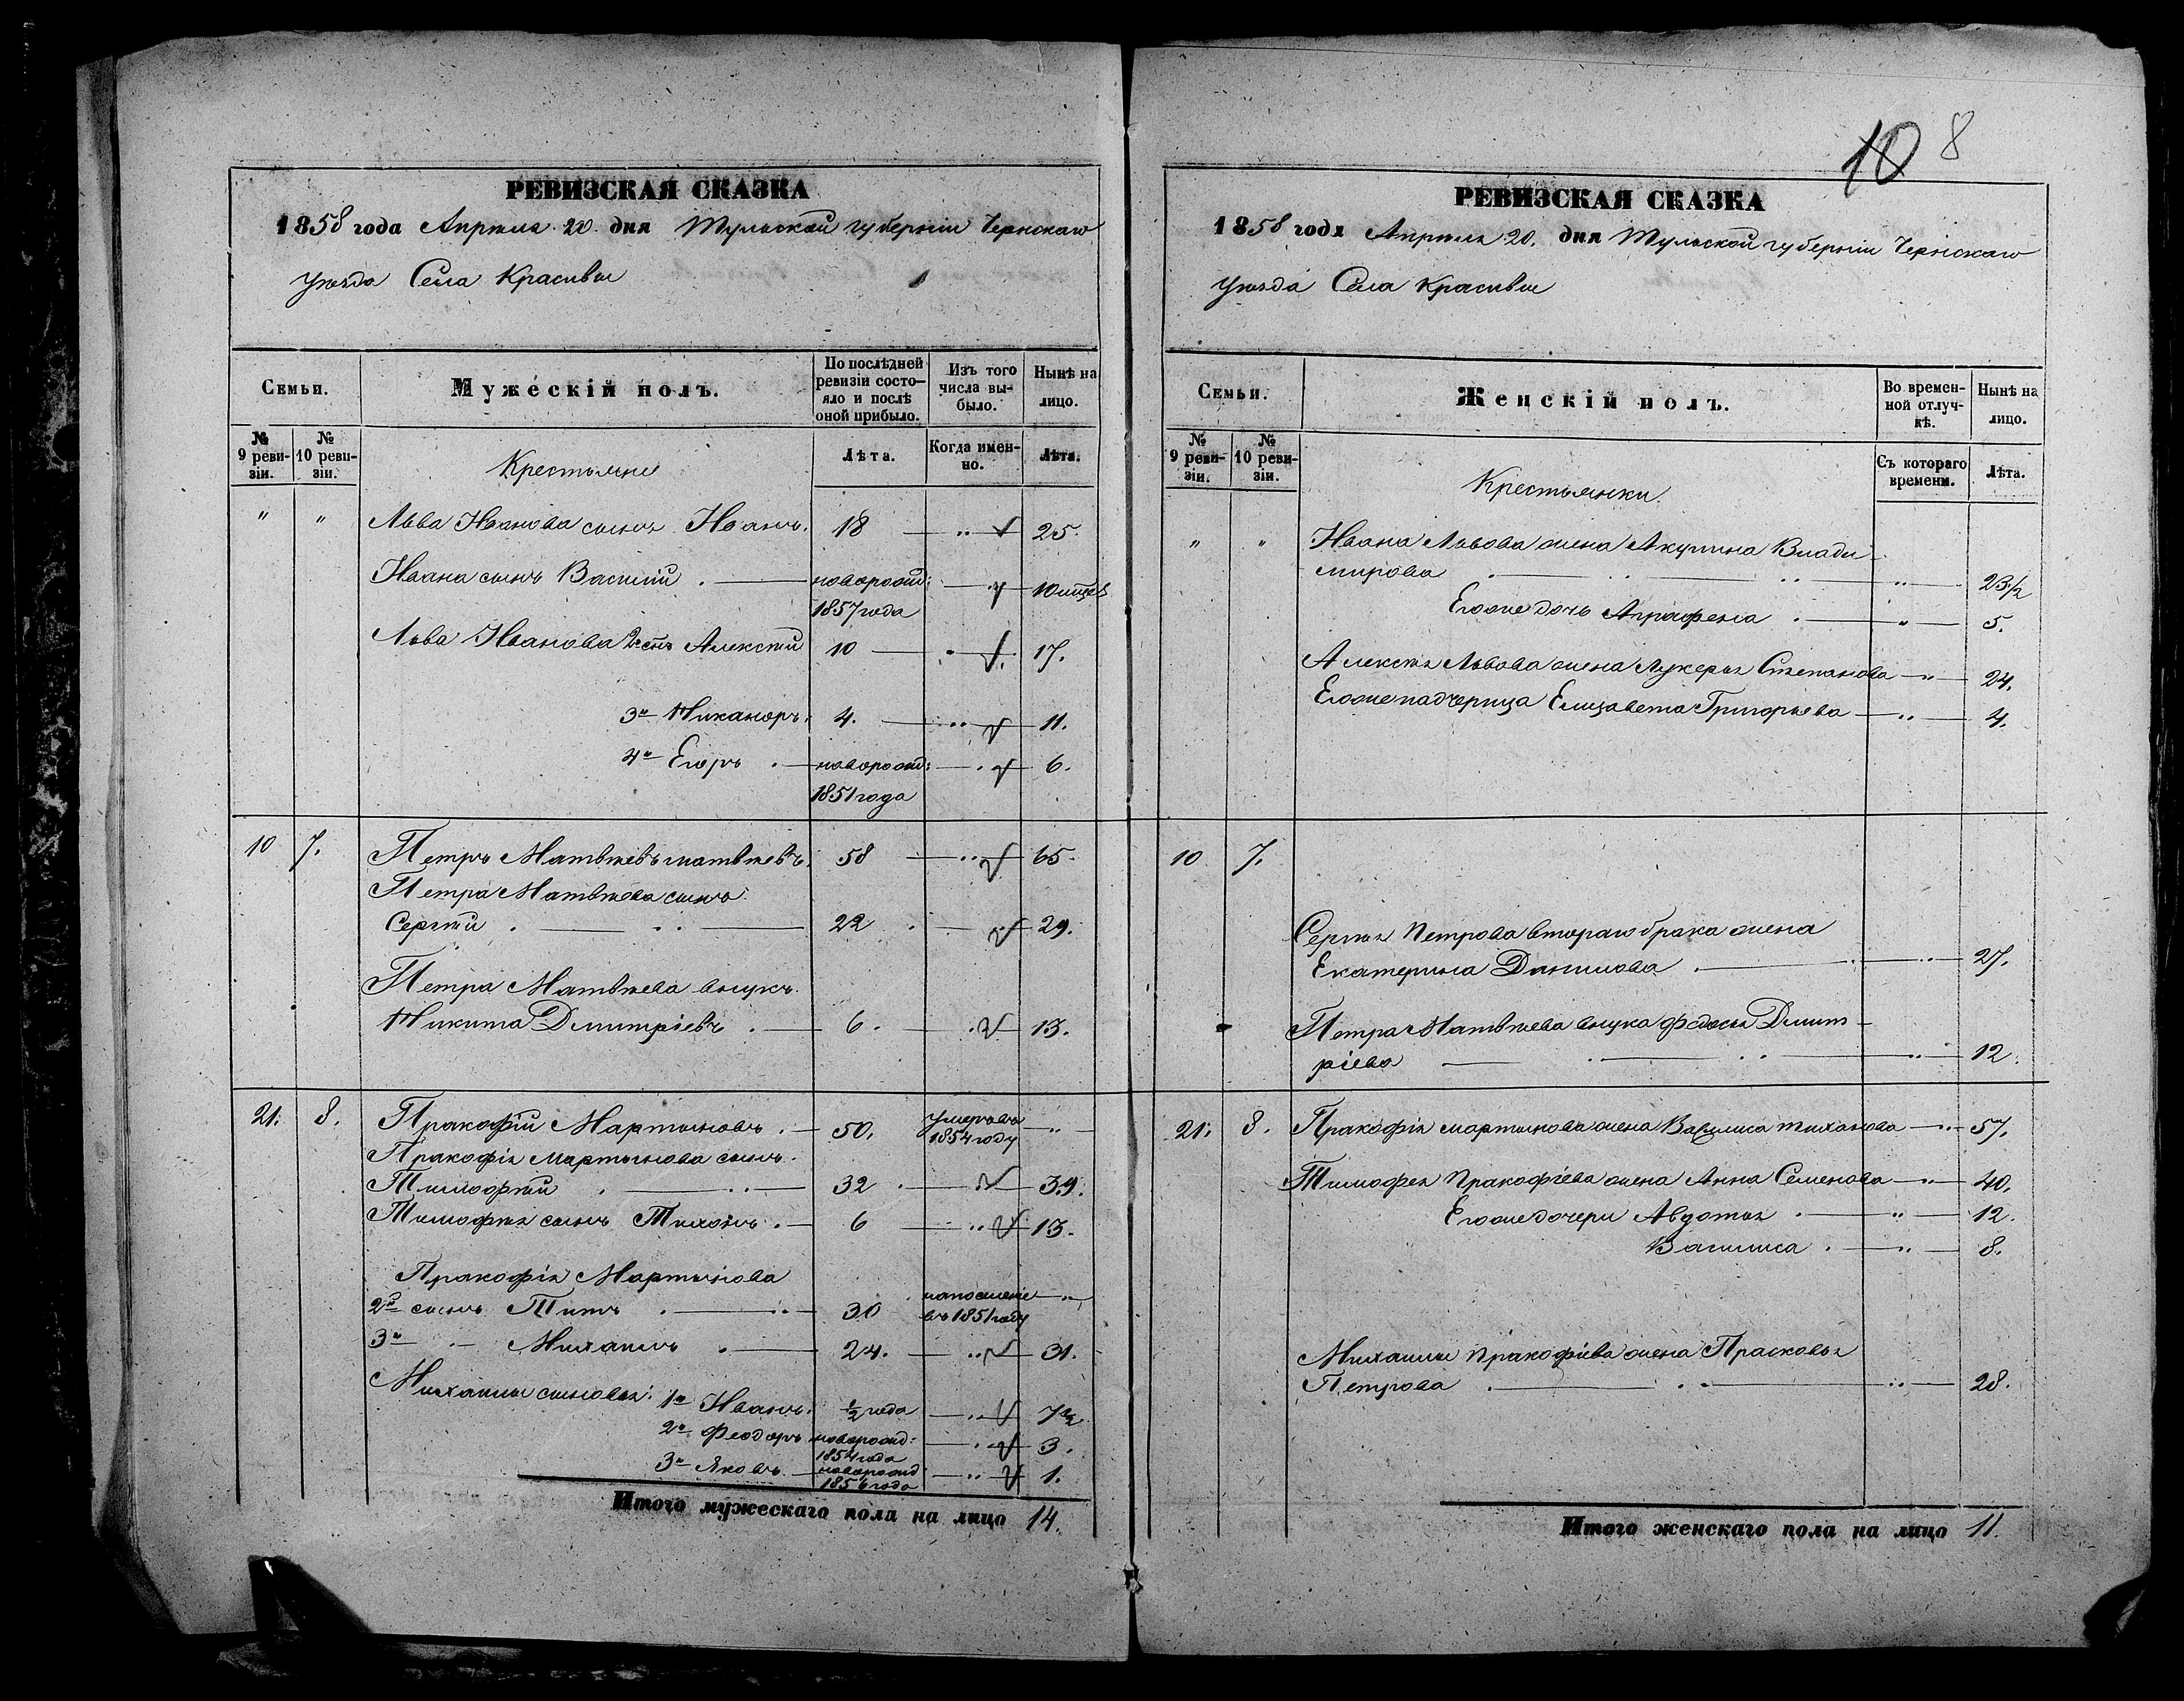 РЕВИЗСКАЯ СКАЗКА
1858 года Апреля 20. дня Тульской губерніи Чернскаго
уѣзда Села Красивки
Семьи.
Мужескій полъ.
По послѣдней ревизіи состо-
яло и послѣ
оной прибыло.
Изъ того
числа вы-
было.
Нынѣ на
лицо.
№
9 реви-
зіи.
№
10 реви-
зіи.
Крестьяне
Лѣта.
Когда имен-
но.
Лѣта.
" " Льва Иванова сынъ Иванъ. 18 25.
Ивана сынъ Василій новорожд: 10 мцев
1857 года
Льва Иванова 2й снъ Алексѣй 10 17.
3й Никаноръ. 4. 11.
4й Егоръ новорожд: 6.
1851 года
10 7. Петръ Матвѣевъ Матвѣевъ. 58 65.
Петра Матвѣева сынъ
Сергѣй 22 29.
Петра Матвѣева внукъ
Никита Дмитріевъ 6. 13.
21. 8. Пракофій Мартыновъ 50. умеръ въ
1854 году
Пракофія Мартынова сынъ
Тимофѣй 32 39.
Тимофѣя сынъ Тихонъ 6 13.
Пракофія Мартынова
2й сынъ Титъ 30 на поселеніе
въ 1851 году
3й Михаилъ 24. 31.
Михаилы сыновья: 1й Иванъ. ½ года 7½
2й Феодоръ новорожд: 3.
1854 года
3й Яковъ новорожд 1.
1856 года
Итого мужескаго пола на лицо 14.
10 8
РЕВИЗСКАЯ СКАЗКА
1858 года Апреля 20. дня Тульской губерніи Чернскаго
уѣзда Села Красивки
Семьи.
Женскій полъ.
Во времен-
ной отлуч-
кѣ.
Нынѣ на
лицо.
№
9 реви-
зіи.
№
10 реви-
зіи.
Крестьянки.
Съ котораго
времени.
Лѣта.
" " Ивана Львова жена Акулина Влади
мирова 23½
Егоже дочь Аграфена 5.
Алексѣя Львова жена Лукерья Степанова 24.
Егоже падчерица Елизавета Григорьева 4.
10 7.
Сергѣя Петрова втораго брака жена
Екатерина Данилова 27.
Петра Матвѣева внука Федосья Дмит
ріева 12
21. 8. Пракофія Мартынова жена Василиса Тиханова 57.
Тимофея Пракофіева жена Анна Семенова 40.
Егоже дочери Авдотья 12.
Василиса 8.
Михаилы Пракофіева жена Прасковья
Петрова 28.
Итого женскаго пола на лицо 11.